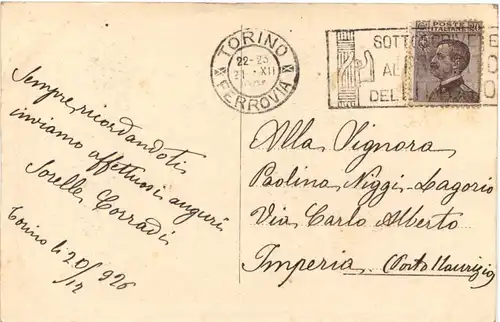 TORINO
22-23
XII
FERROVIA
SOTT
AL
DEL
POSTE
ITALIANE
Sempre ricordandoti
inviamo affettuosi auguri
Sorelle Corradi
Torino li 20/12 926
Alla Signora
Paolina Niggi-Lagorio
Via Carlo Alberto
Imperia (Porto Maurizio)